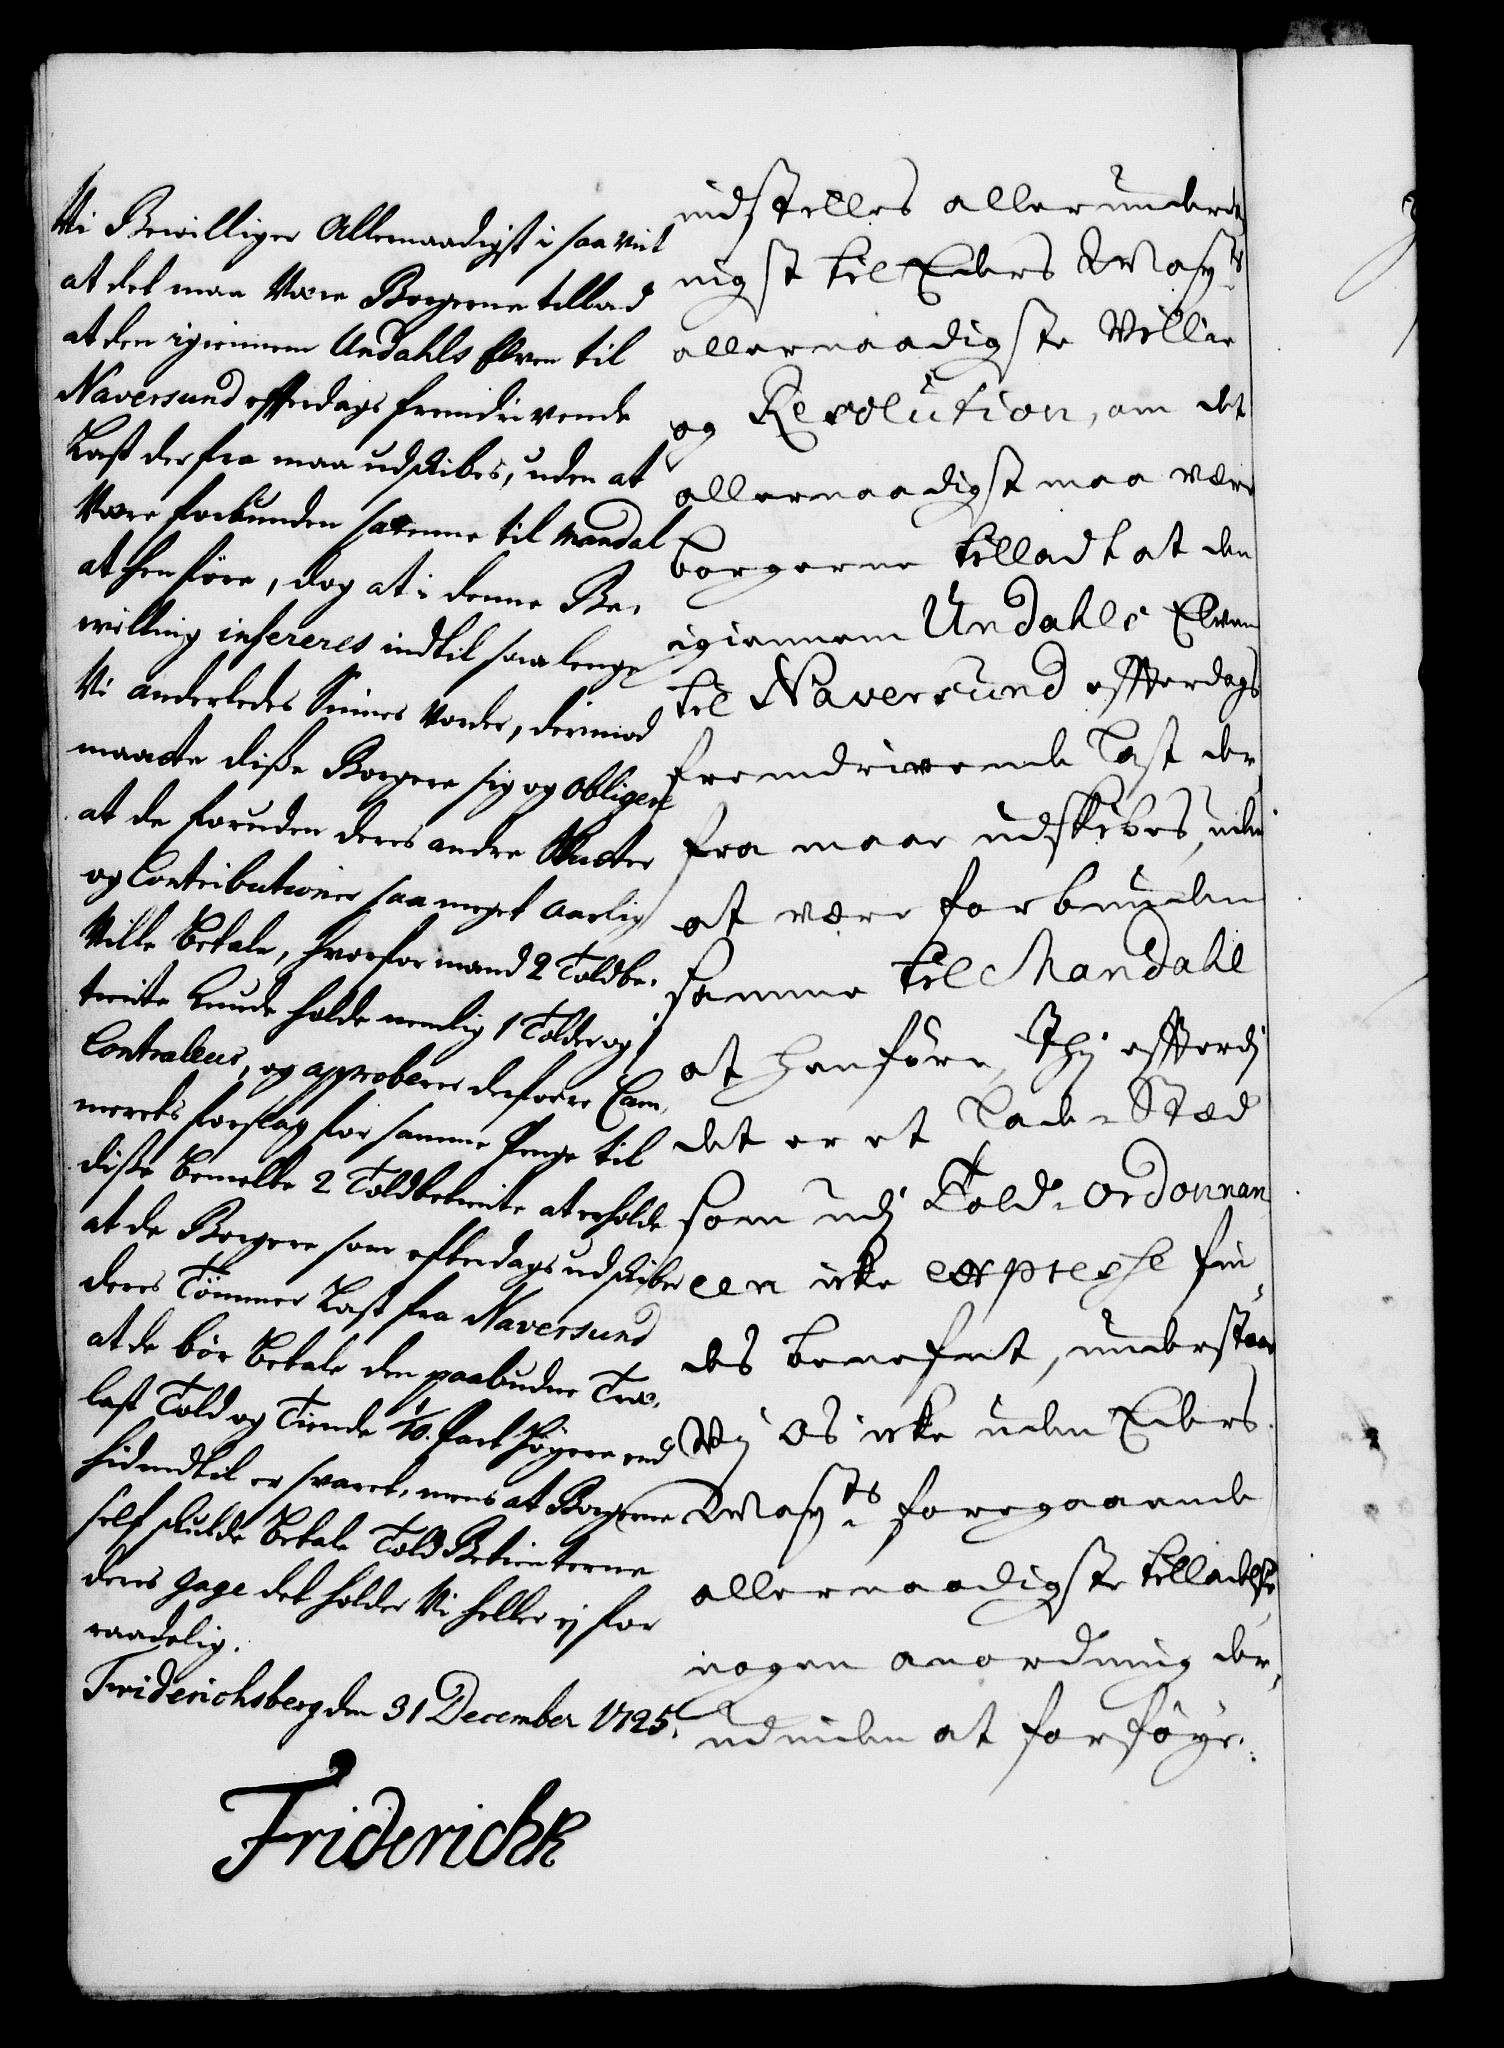 Vi Bewilliger Allernaadigst i saa vit
at det maa Være Borgerne tillad
at den igiennem Undahls Elven til
Naversund efterdags fremdrivende
Last derfra maa udskibes, uden at
Være forbunden samme til Mandal
at henføre, dog at i denne Be,
willing insereres indtil saa lenge
Vi anderledes Sinnes vorder, derimod
maatte disse Borgere sig og obligere
at de foruden deres andre Skatter
og Contributioner saa meget aarlig
Ville betale, hvorfor mand 2 Toldbe,
tiente kunde holde nemlig 1 Tolder og 1
Contralleur, og approberes derforre Cam,
merets forslag for samme Penge til
disse bemelte 2 Toldbetiente at erholde
at de Borgere som efterdags udskiber
deres Tømmer Last fra Naversund
at de bør betale den paabudne Træ,
last Told og Tiende 1/10. part høyere end
hidindtil er svaret, mens at Borgerne
self skulde betale Told Betienterne
deres gage det holder Vi heller ej for
raadelig.
Friderichsberg den 31 December 1725.
Friderich R
indstilles allerunderda
nigst til Eders Mayts
allernaadigste Villie
og Resolution, om det
allernaadigst maa være
borgerne tilladt at den
igiennem Undahls Elven
til Naversund effterdags
fremdrivende Last der,
fra maae udskibes, uden
at være forbunden
samme til Mandahl
at henføre, Thj effterdj
det er et Lade-Stæd
som udj Told-ordonnan
cen icke expresse fin,
des benefnt, understaar
Wj os icke uden Eders
Mayts foregaaende
allernaadigste tilladelse
nogen anordning der,
udinden at forføye.